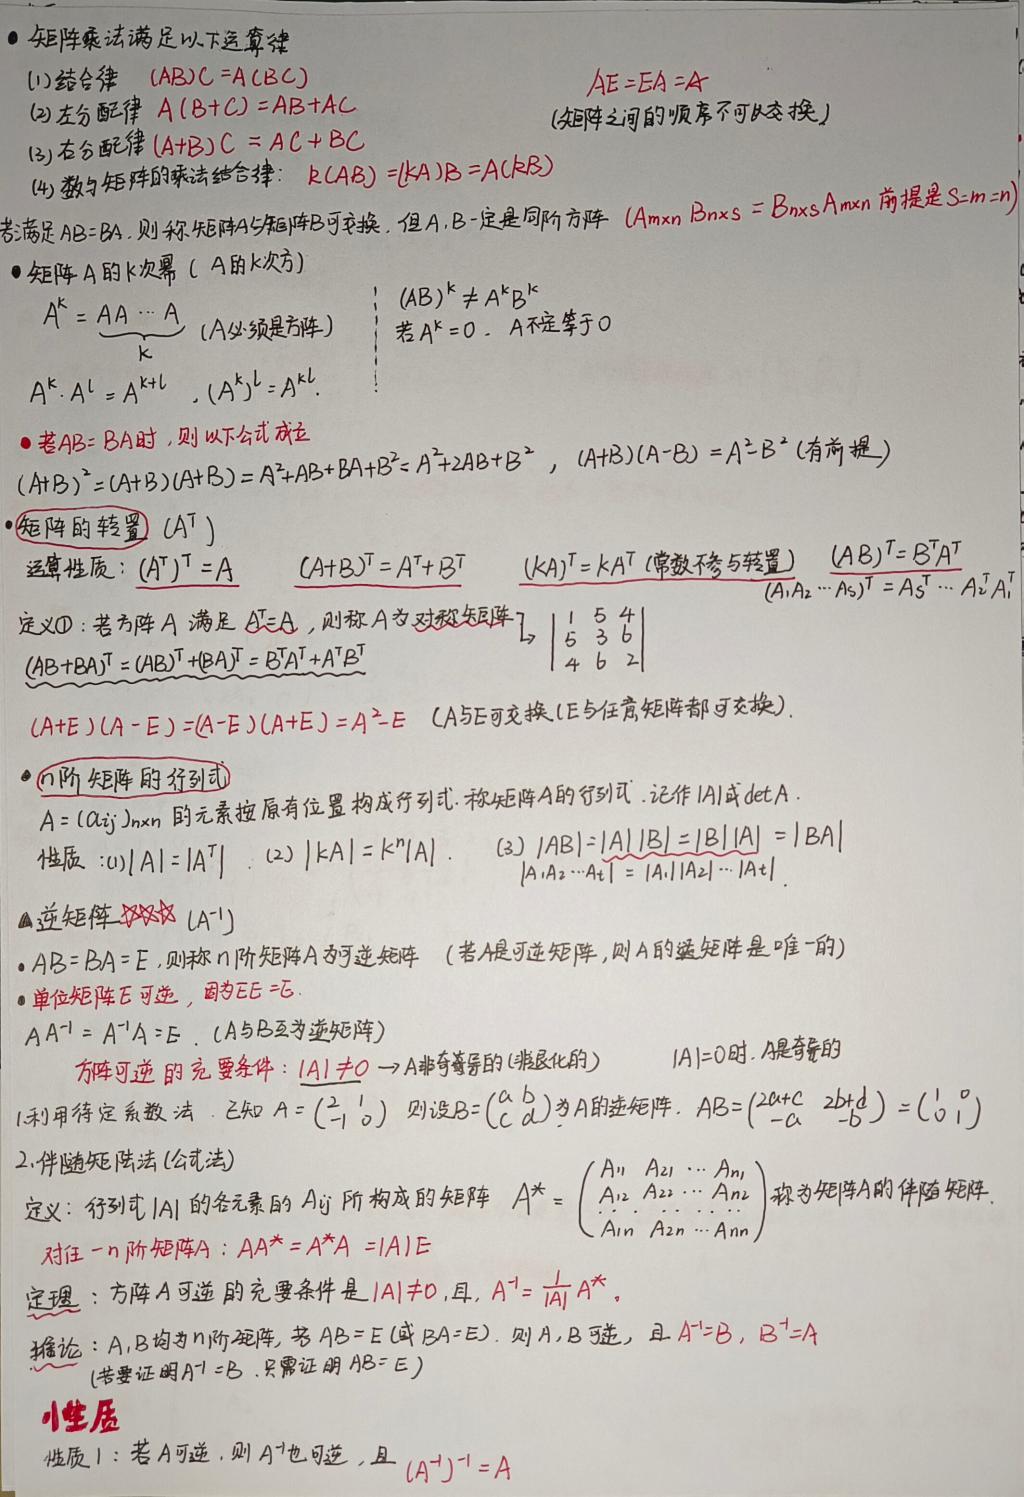 • 矩阵乘法满足以下运算律
(1)结合律 (AB)C=A(BC)
AE=EA=A
(2)左分配律 A(B+C)=AB+AC
(矩阵之间的顺序不可以交换)
(3)右分配律(A+B)C=AC+BC
(4)数与矩阵的乘法结合律: k(AB)=(kA)B=A(kB)
若满足AB=BA,则称矩阵A与矩阵B可交换,但A,B一定是同阶方阵 (Am×n Bn×s = Bn×s Am×n 前提是S=m=n)
• 矩阵A的K次幂 (A的K次方)
A^k = AA…A (A必须是方阵)
k
(AB)^k ≠ A^kB^k
若A^k=0. A不定等于0
A^k·A^l=A^{k+l} , (A^k)^l=A^{kl}.
• 若AB=BA时,则以下公式成立
(A+B)²=(A+B)(A+B)=A²+AB+BA+B²=A²+2AB+B² , (A+B)(A-B)=A²-B² (有前提)
• 矩阵的转置 (A^T)
运算性质: (A^T)^T=A (A+B)^T=A^T+B^T (KA)^T=KA^T (常数不参与转置) (AB)^T=B^TA^T
(A₁A₂…As)^T=As^T…A₂^TA₁^T
定义①:若方阵A 满足 A^T=A ,则称A为对称矩阵
|1 5 4|
|5 3 6|
|4 6 2|
(AB+BA)^T=(AB)^T+(BA)^T=B^TA^T+A^TB^T
(A+E)(A-E)=(A-E)(A+E)=A²-E (A与E可交换(E与任意矩阵都可交换).
• n阶矩阵的行列式
A=(aij)n×n 的元素按原有位置构成行列式.称矩阵A的行列式.记作|A|或detA.
性质:(1)|A|=|A^T| . (2) |KA|=K^n|A| . (3) |AB|=|A||B|=|B||A|=|BA|
|A₁A₂…At|=|A₁||A₂|…|At|.
▲逆矩阵☆☆☆ (A⁻¹)
• AB=BA=E,则称n阶矩阵A为可逆矩阵 (若A是可逆矩阵,则A的逆矩阵是唯一的)
• 单位矩阵E可逆,因为EE=E.
AA⁻¹=A⁻¹A=E . (A与B互为逆矩阵)
方阵可逆的充要条件: |A|≠0→A非奇异的(非退化的) |A|=0时.A是奇异的
1.利用待定系数法.已知 A=(2 1 / -1 0) 则设B=(a b / c d)为A的逆矩阵. AB=(2a+c 2b+d / -a -b)=(1 0 / 0 1)
2.伴随矩阵法(公式法)
定义:行列式|A|的各元素的Aij所构成的矩阵 A*=
(A₁₁ A₂₁ … An₁
A₁₂ A₂₂ … An₂
. . . . . . .
A₁n A₂n … Ann)
称为矩阵A的伴随矩阵.
对任一n阶矩阵A: AA*=A*A=|A|E
定理:方阵A可逆的充要条件是|A|≠0,且, A⁻¹=1/|A| A*。
推论:A,B均为n阶矩阵,若AB=E(或BA=E).则A,B可逆,且A⁻¹=B, B⁻¹=A
(若要证明A⁻¹=B.只需证明AB=E)
小性质
性质1:若A可逆.则A⁻¹也可逆,且 (A⁻¹)⁻¹=A